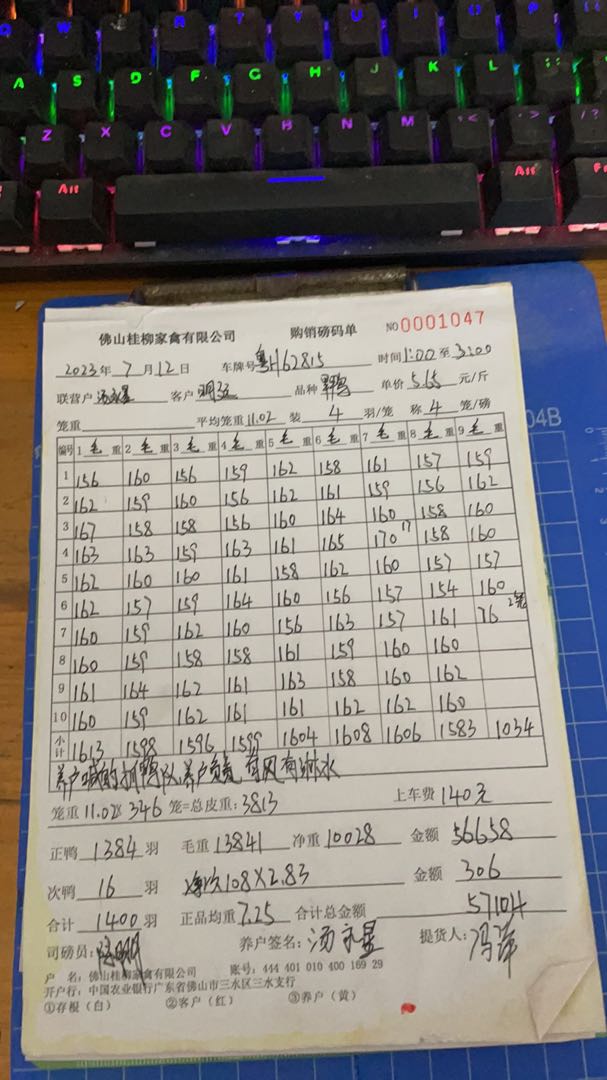 Q W R T Y U I O P
A S D F G H J K L
Z X C V B N M
Alt Alt
佛山桂柳家禽有限公司 购销磅码单 NO 0001047
2023年 7月 12日 车牌号 粤H62815 时间 1:00 至 3:00
联营户 汤永星 客户 品种 单价 5.65 元/斤
笼重 平均笼重 11.02 装 4 羽/笼 称 4 笼/磅
编号 1 毛重 2 毛重 3 毛重 4 毛重 5 毛重 6 毛重 7 毛重 8 毛重 9 毛重
1 156 160 156 159 162 158 161 157 159
2 162 159 160 156 162 161 159 156 162
3 167 158 158 156 160 164 160 158 160
4 163 163 159 163 161 165 170 17 158 160
5 162 160 160 161 158 162 160 157 157
6 162 157 159 164 160 156 157 154 160
7 160 159 162 160 156 163 157 161 76 2笼
8 160 159 158 158 161 159 160 160
9 161 164 162 161 163 158 160 162
10 160 159 162 161 161 162 162 160
小计 1613 1598 1596 1599 1604 1608 1606 1583 1034
养户喊的抓鸭队,养户负责 有风有淋水
笼重 11.02X 346 笼=总皮重: 3813 上车费 140元
正鸭 1384 羽 毛重 13841 净重 10028 金额 56658
次鸭 16 羽 108×2.83 金额 306
合计 1400 羽 正品均重 7.25 合计总金额 57104
司磅员: 养户签名: 汤永星 提货人: 冯萍
户 名: 佛山桂柳家禽有限公司 账号: 444 401 010 400 169 29
开户行: 中国农业银行广东省佛山市三水区三水支行
①存根(白) ②客户(红) ③养户(黄)
04B